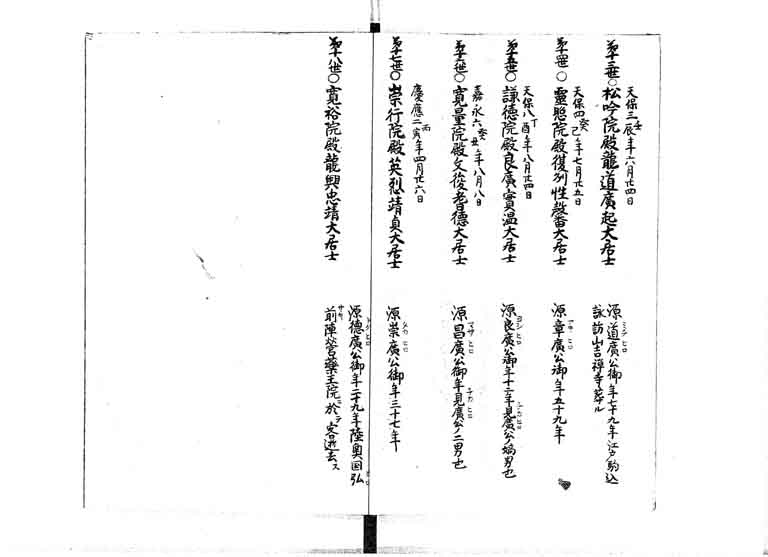 天保三壬辰年六月廿四日
第十三世〇松吟院殿龍道廣起大居士
源道廣公御年七十九年江戸駒込
諏訪山吉禅寺葬ル
天保四癸巳年七月廿五日
第十四世〇靈慇院殿復列性誉大居士
源章廣公御年五十九年
天保八丁酉年八月廿四日
第十五世〇謙德院殿良廣實温大居士
源良廣公御年十二年見廣公ノ嫡男也
嘉永六癸丑年八月八日
第十六世〇寛量院殿文俊耆德大居士
源昌廣公御年見廣公ノ二男也
慶應二丙寅年四月廿六日
第十七世〇崇行院殿英烈靖貞大居士
源崇廣公御年三十七年
第十八世〇寛裕院殿龍興忠靖大居士
源德廣公御年二十九年陸奥国弘
前陣営薬王院ニ於テ客逝去ス